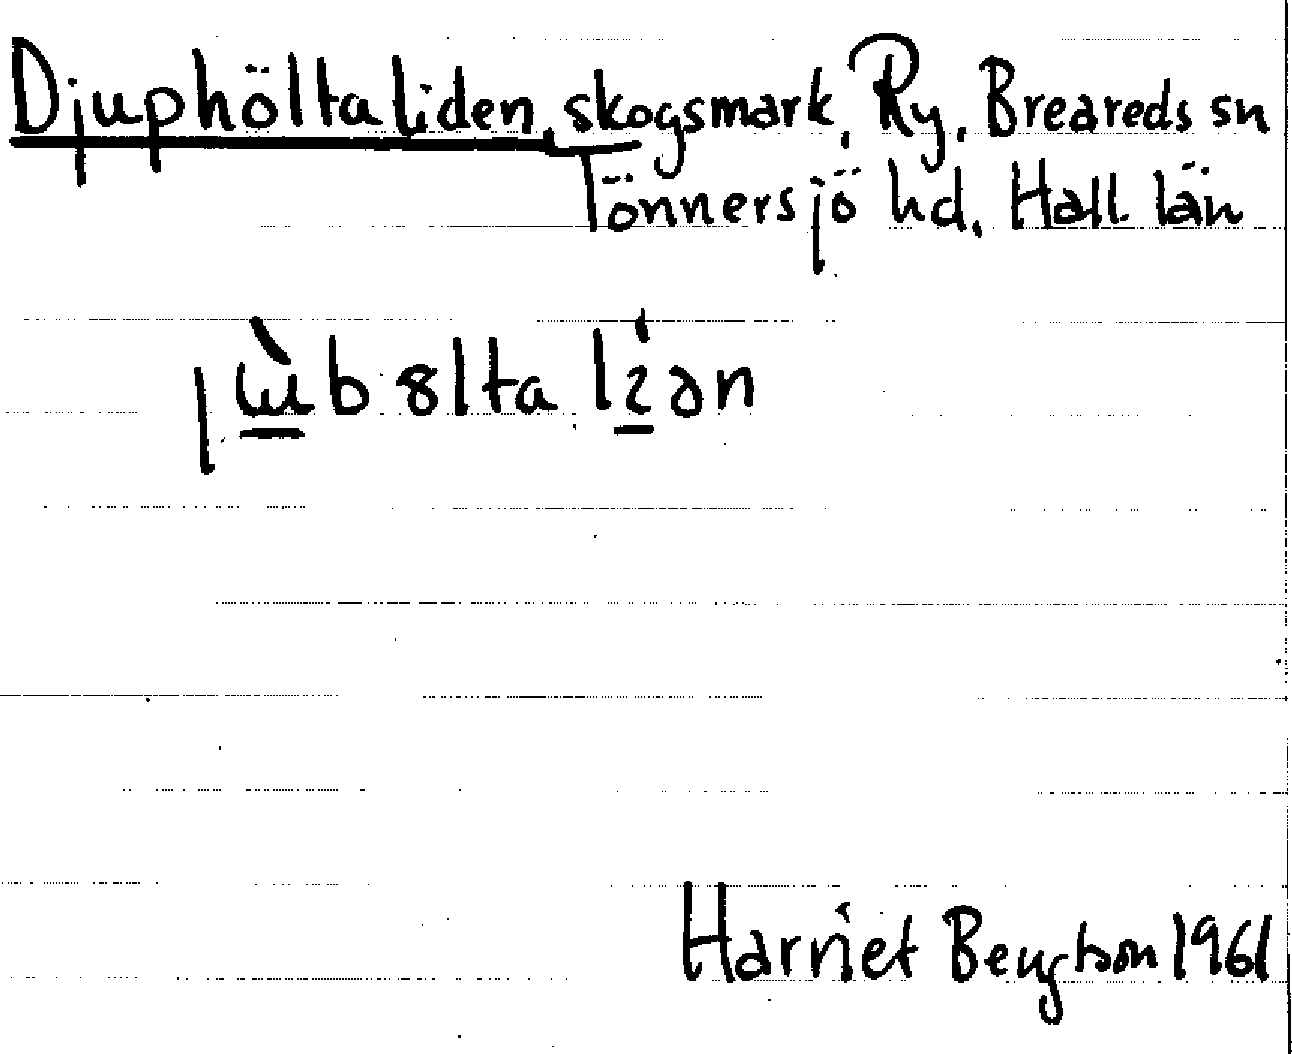 Djuphöltaliden, skogsmark, Ry, Breareds sn
Tönnersjö hd, Hall län
Harriet Bengtson 1961